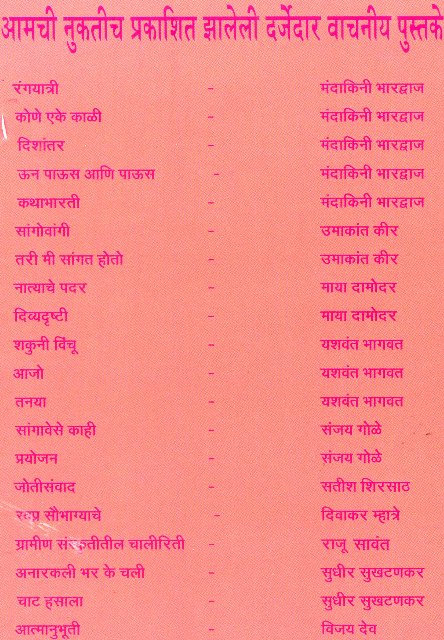 आमची नुकतीच प्रकाशित झालेली दर्जेदार वाचनीय पुस्तके
रंगयात्री - मंदाकिनी भारद्वाज
कोणे एके काळी - मंदाकिनी भारद्वाज
दिशांतर - मंदाकिनी भारद्वाज
ऊन पाऊस आणि पाऊस - मंदाकिनी भारद्वाज
कथाभारती - मंदाकिनी भारद्वाज
सांगोवांगी - उमाकांत कीर
तरी मी सांगत होतो - उमाकांत कीर
नात्याचे पदर - माया दामोदर
दिव्यदृष्टी - माया दामोदर
शकुनी विंचू - यशवंत भागवत
आजो - यशवंत भागवत
तनया - यशवंत भागवत
सांगावेसे काही - संजय गोळे
प्रयोजन - संजय गोळे
जोतीसंवाद - सतीश शिरसाठ
सौभाग्याचे - दिवाकर म्हात्रे
ग्रामीण संस्कृतीतील चालीरिती - राजू सावंत
अनारकली भर के चली - सुधीर सुखटणकर
चाट हसाला - सुधीर सुखटणकर
आत्मानुभूती - विजय देव